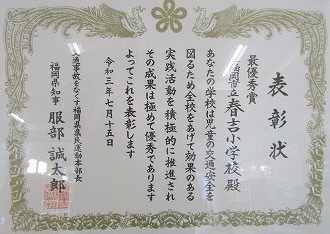 表彰状
最優秀賞
福岡市立春吉小学校殿
あなたの学校は児童の交通安全を
図るため全校をあげて効果のある
実践活動を積極的に推進され
その成果は極めて優秀であります
よってこれを表彰します
令和三年七月十五日
交通事故をなくす福岡県県民運動本部長
福岡県知事 服部誠太郎